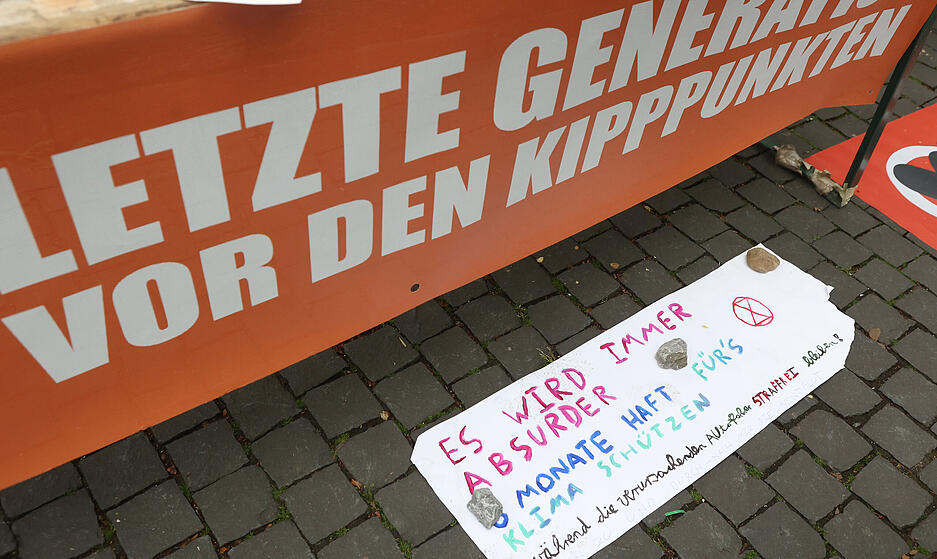 LETZTE GENERATIO
VOR DEN KIPPPUNKTEN
ES WIRD IMMER
ABSURDER
MONATE HAFT FÜR'S
KLIMA SCHÜTZEN
während die verursachenden STRAFFREI bleiben?